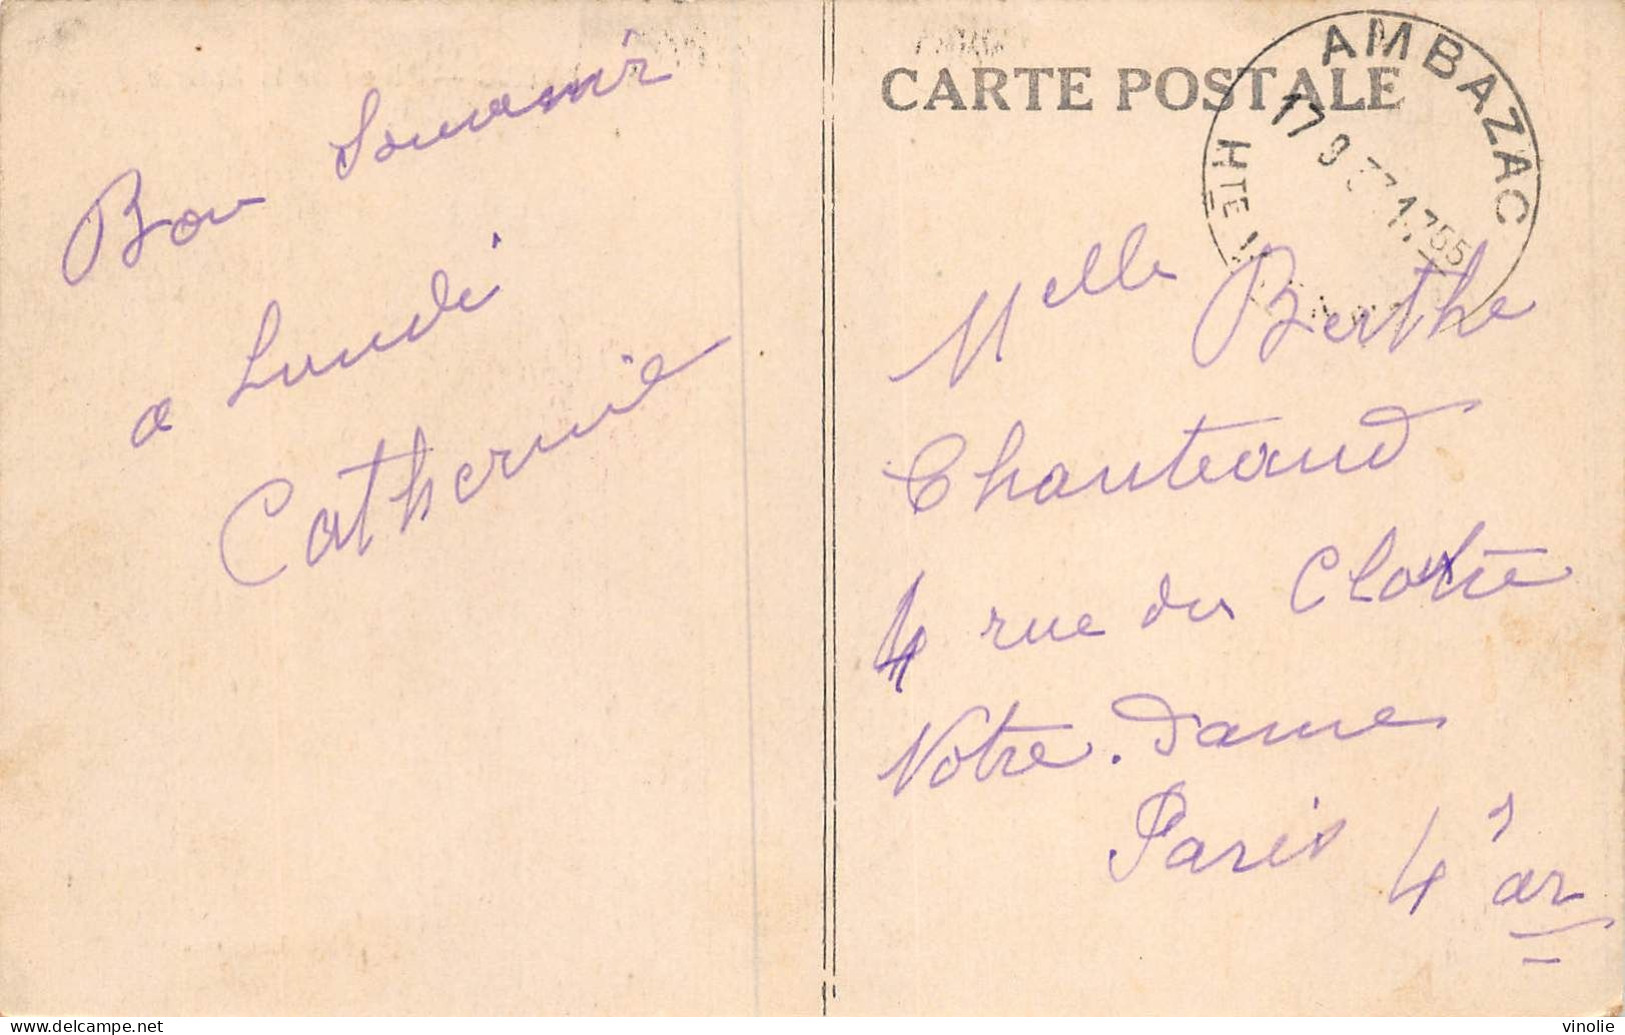 Bon Souvenir
a Lundi
Catherine
CARTE POSTALE
AMBAZAC
17 9 37 1755
HTE V
Melle Berthe
Chanteaud
4 rue du Cloître
Notre-Dame
Paris 4' ar
vinolie